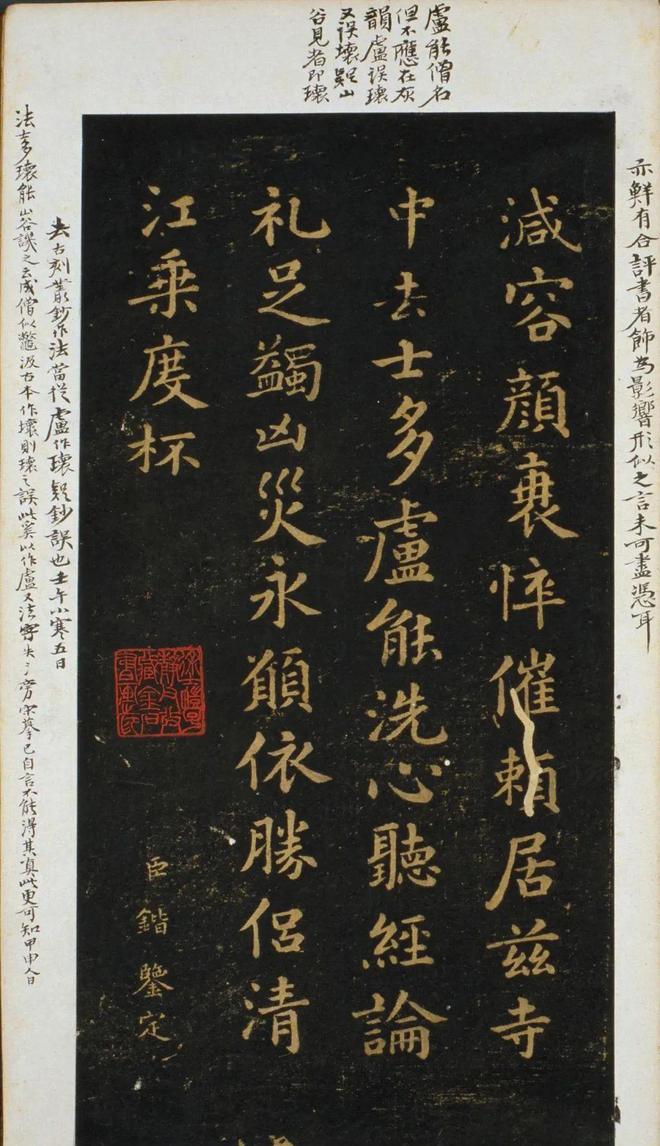 盧能僧名
但不應在灰
韻盧誤瓌
又誤壞疑山
谷見者即瓌
亦鮮有合評書者飾為影響形似之言未可盡憑耳
減容顏衰悴催賴居茲寺
中去士多盧能洗心聽經論
礼足蠲凶災永願依勝侶清
江乘度杯
臣鍇鑒定
去古刻叢鈔作法當從盧作瓌疑鈔誤也壬午小寒五日
法士多瓌能山谷譏之云咸僧似鱉汲古本作壞則瓌之誤此奚以作盧又法字失氵旁宋摹已自言不能得其真此更可知甲申人日